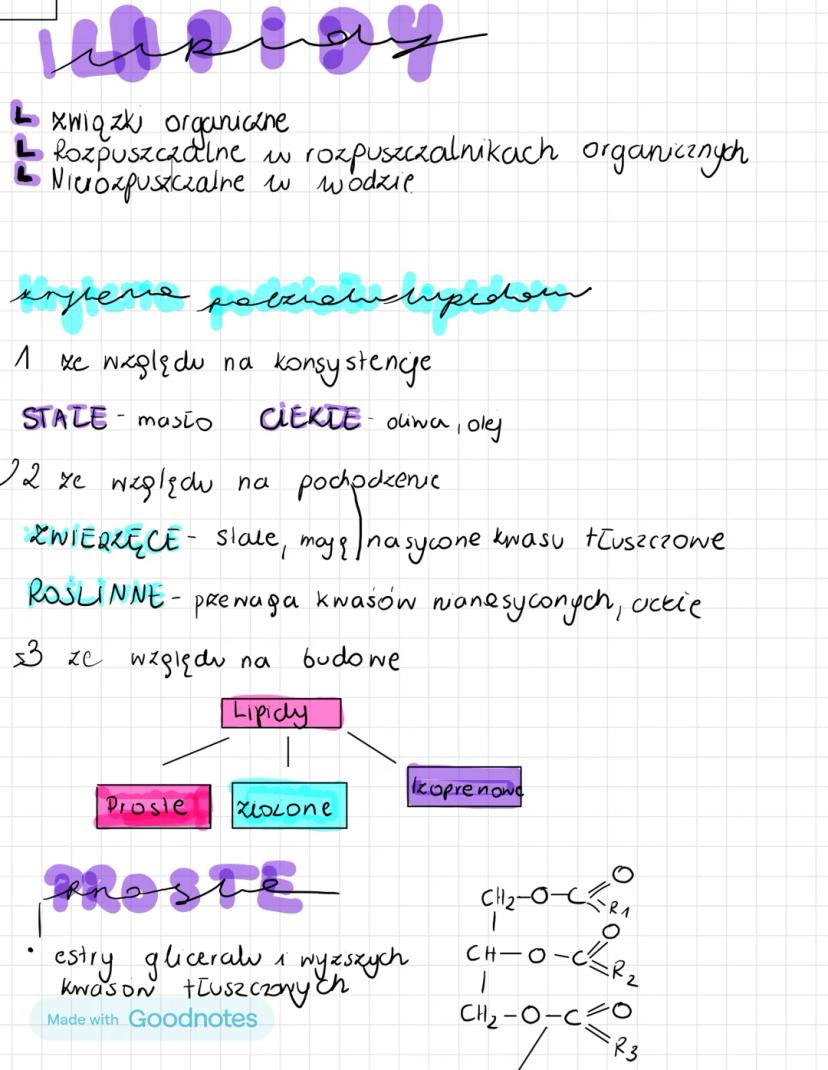 LIPIDY
lipidy
związki organiczne
Rozpuszczalne w rozpuszczalnikach organicznych
Nierozpuszczalne w wodzie
kryteria podziału lipidów
1 ze względu na konsystencje
STAŁE - masło CIEKŁE - oliwa, olej
2 ze względu na pochodzenie
ZWIERZĘCE - stałe, mają nasycone kwasu tłuszczowe
ROŚLINNE - przewaga kwasów nianesyconych, ciekłe
3 ze względu na budowe
Lipidy
Proste złożone Izoprenowe
PROSTE
proste
• estry gliceralu i wyższych
kwasów tłuszczonych
CH2-O-C O R1
CH-O-C O R2
CH2-O-C O R3
Made with Goodnotes